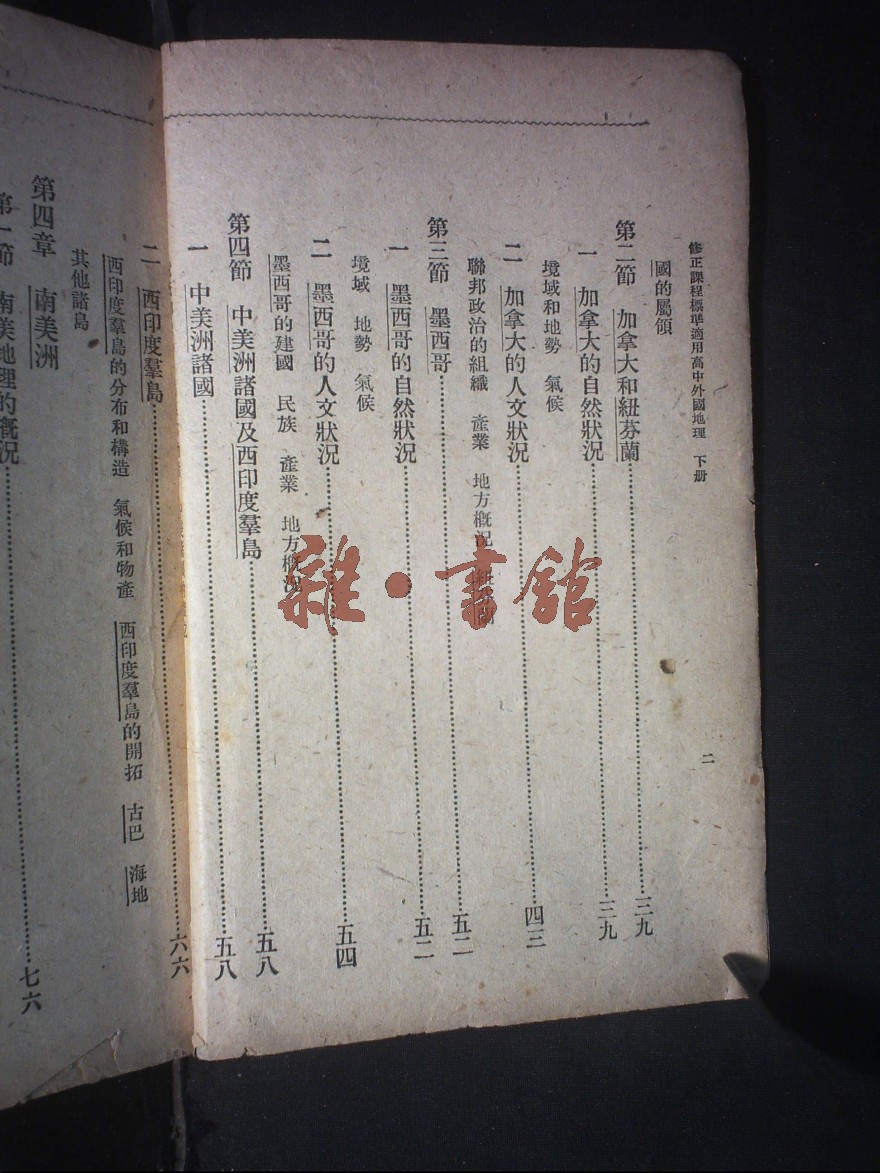 修正課程標準適用高中外國地理　下册
二
國的屬領
第二節　加拿大和紐芬蘭……三九
一　加拿大的自然狀況……三九
境域和地勢　氣候
二　加拿大的人文狀況……四三
聯邦政治的組織　產業　地方概況
第三節　墨西哥……五二
一　墨西哥的自然狀況……五二
境域　地勢　氣候
二　墨西哥的人文狀況……五四
墨西哥的建國　民族　產業　地方概況
第四節　中美洲諸國及西印度羣島……五八
一　中美洲諸國……五八
二　西印度羣島……六六
西印度羣島的分布和構造　氣候和物產　西印度羣島的開拓　古巴　海地
其他諸島
第四章　南美洲
第一節　南美地理的概況……七六
雜·書館